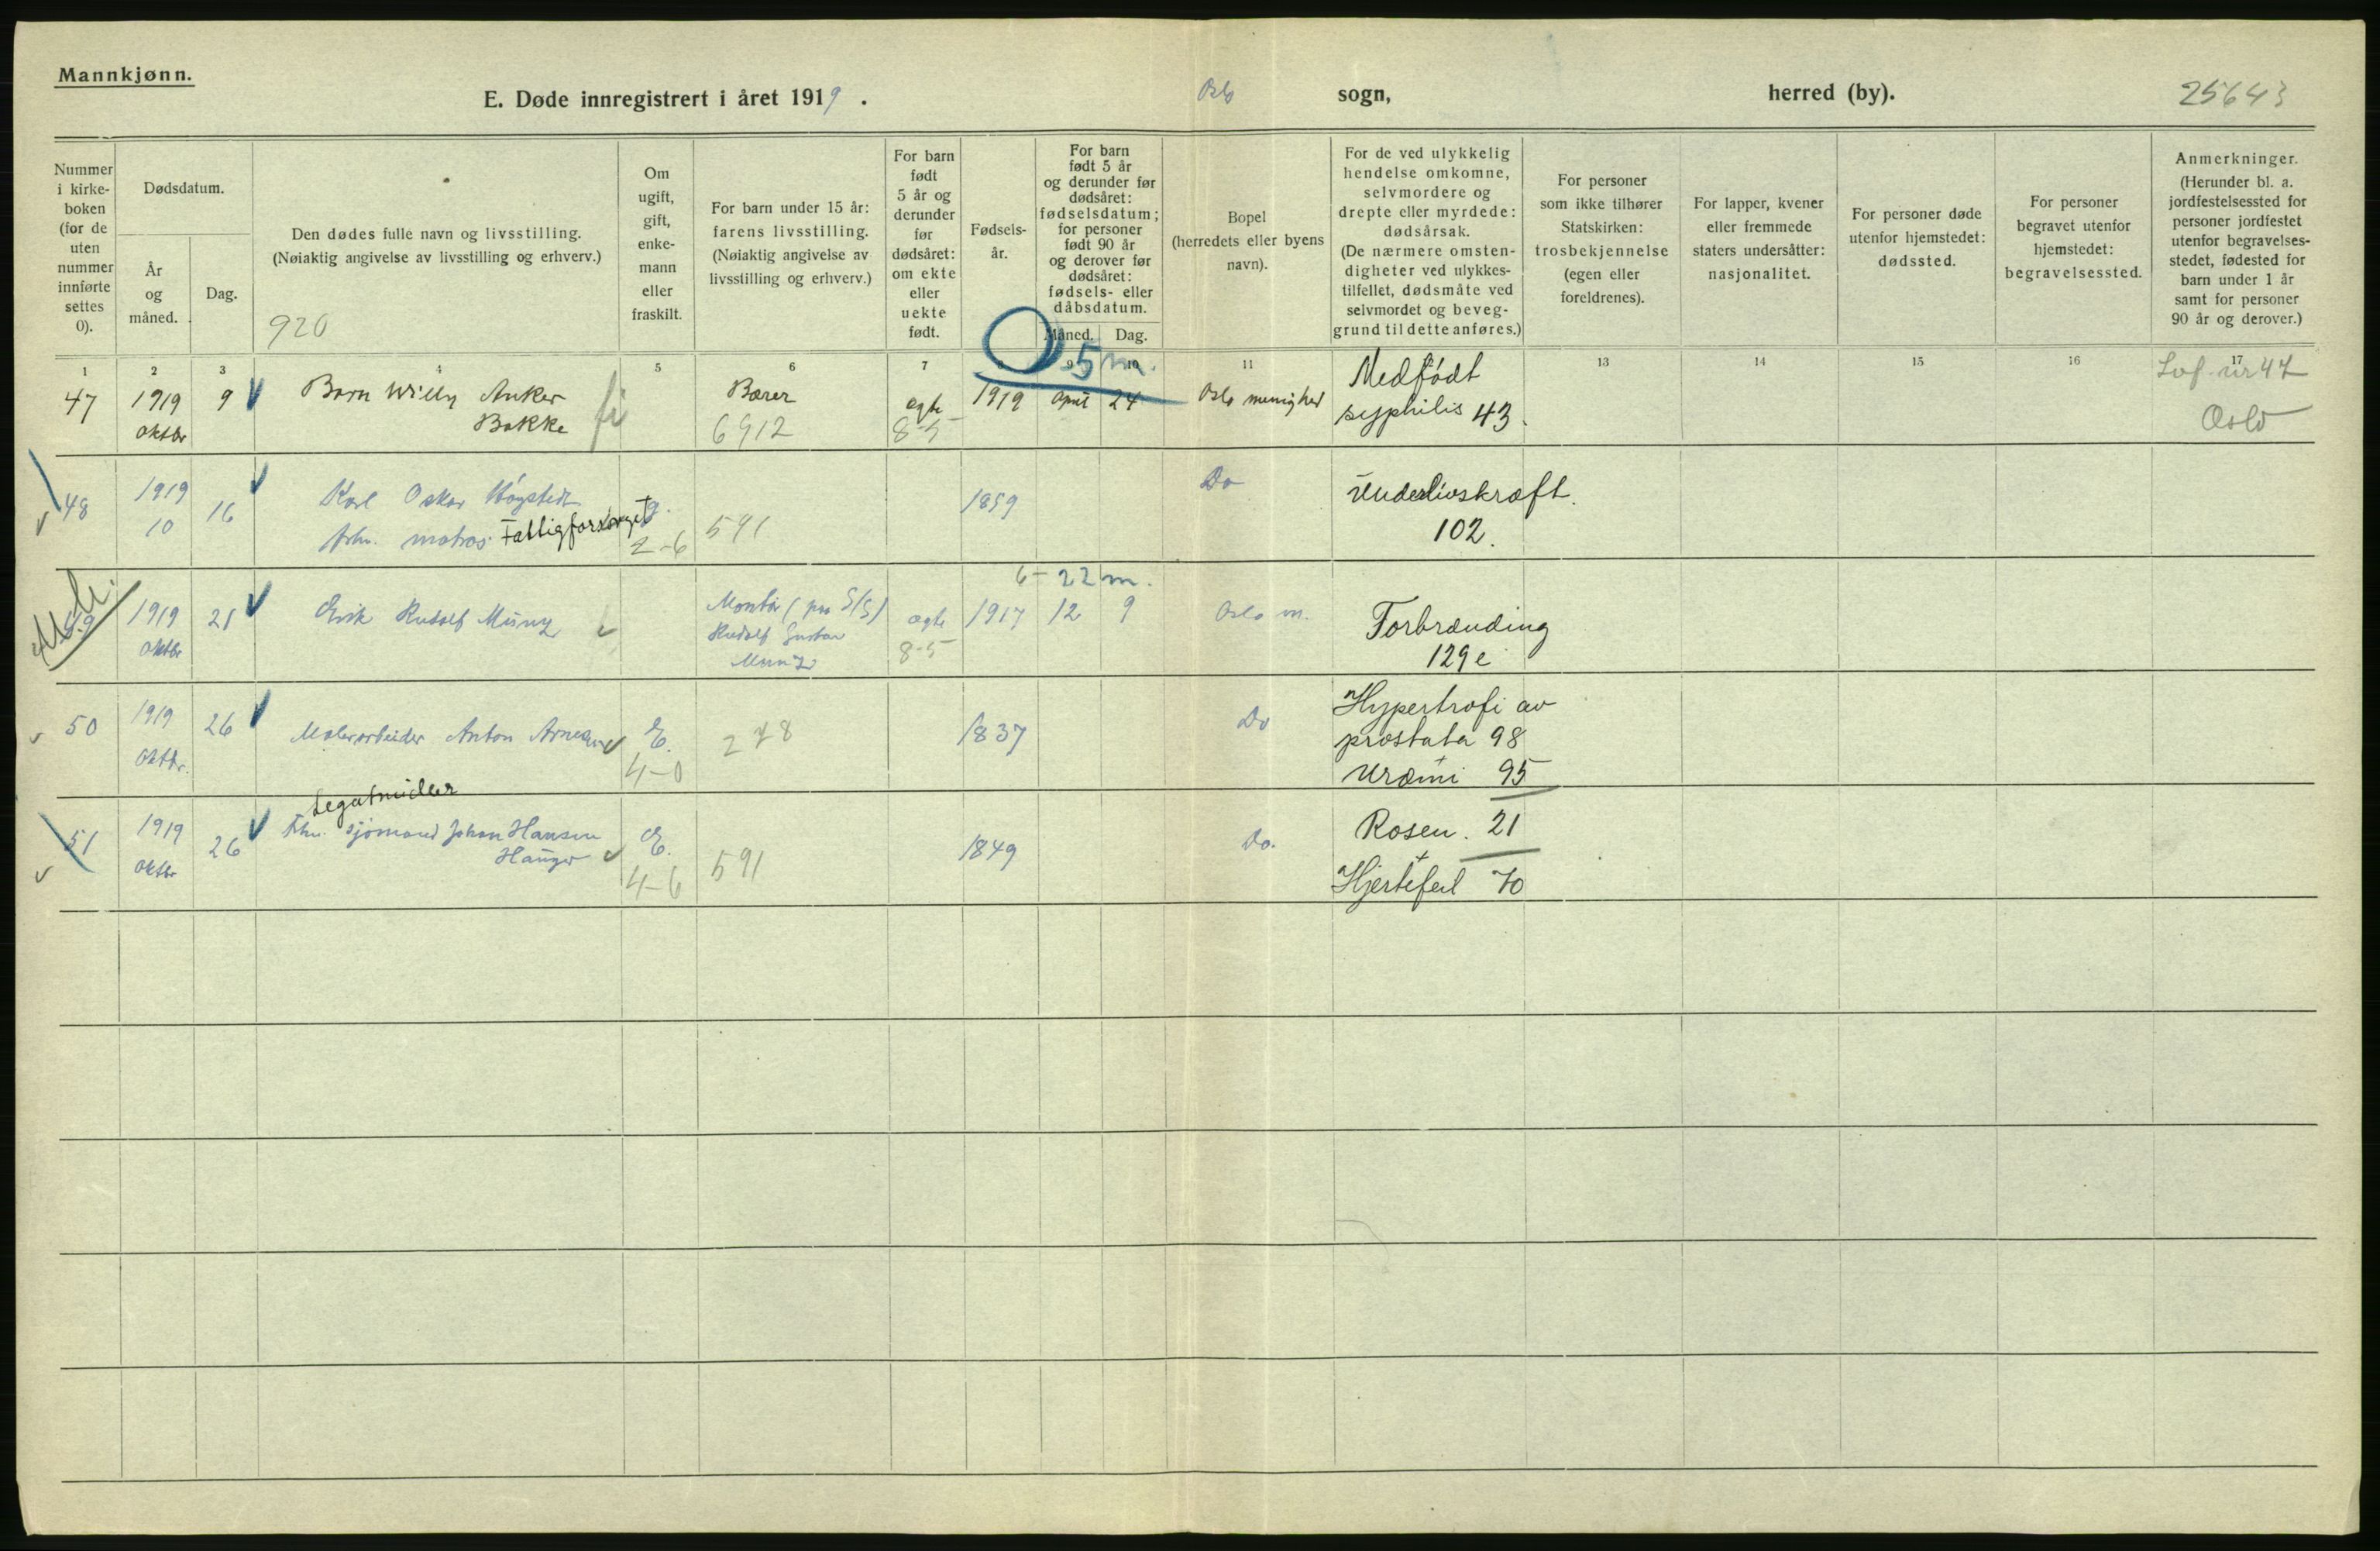 Mannkjønn.
E. Døde innregistrert i året 1919.
Oslo sogn,
herred (by).
25643
Nummer i kirke-boken (for de uten nummer innførte settes 0).
Dødsdatum.
År og måned.
Dag.
Den dødes fulle navn og livsstilling.
(Nøiaktig angivelse av livsstilling og erhverv.)
920
Om ugift, gift, enke-mann eller fraskilt.
For barn under 15 år: farens livsstilling.
(Nøiaktig angivelse av livsstilling og erhverv.)
For barn født 5 år og derunder før dødsåret: om ekte eller uekte født.
Fødsels-år.
For barn født 5 år og derunder før dødsåret: fødselsdatum; for personer født 90 år og derover før dødsåret: fødsels- eller dåbsdatum.
Måned. Dag.
Bopel
(herredets eller byens navn).
For de ved ulykkelig hendelse omkomne, selvmordere og drepte eller myrdede: dødsårsak.
(De nærmere omsten-digheter ved ulykkes-tilfellet, dødsmåte ved selvmordet og beveg-grund til dette anføres.)
For personer som ikke tilhører Statskirken: trosbekjennelse (egen eller foreldrenes).
For lapper, kvener eller fremmede staters undersåtter: nasjonalitet.
For personer døde utenfor hjemstedet: dødssted.
For personer begravet utenfor hjemstedet: begravelsessted.
Anmerkninger.
(Herunder bl. a. jordfestelsessted for personer jordfestet utenfor begravelses-stedet, fødested for barn under 1 år samt for personer 90 år og derover.)
1 2 3 4 5 6 7 9 10 11 13 14 15 16 17
0 5 m.
47 1919 oktbr 9 Barn Willy Anker Bakke Bærer 6912 ægte 8-5 1919 April 24 Oslo menighed Medfødt syphilis 43. nr 47 Oslo
48 1919 10 16 Karl Oskar fhv. matros Fattigforsørget g. 2-6 591 1859 Do Underlivskræft. 102.
6- 22 m.
49 1919 oktbr 21 Erik Rudolf Münz Montør Rudolf Gustav Münz ægte 8-5 1917 12 9 Oslo m. Forbrænding 129 e
50 1919 oktbr. 26 Malerarbeider Anton Arnesen E. 4-0 278 1837 Do Hypertrofi av prostata 98 + Uræmi 95
51 1919 oktbr 26 Legatnyder Fhv. sjømand Johan Hansen Hauger E. 4-6 591 1849 Do. Rosen. 21 + Hjertefeil 70